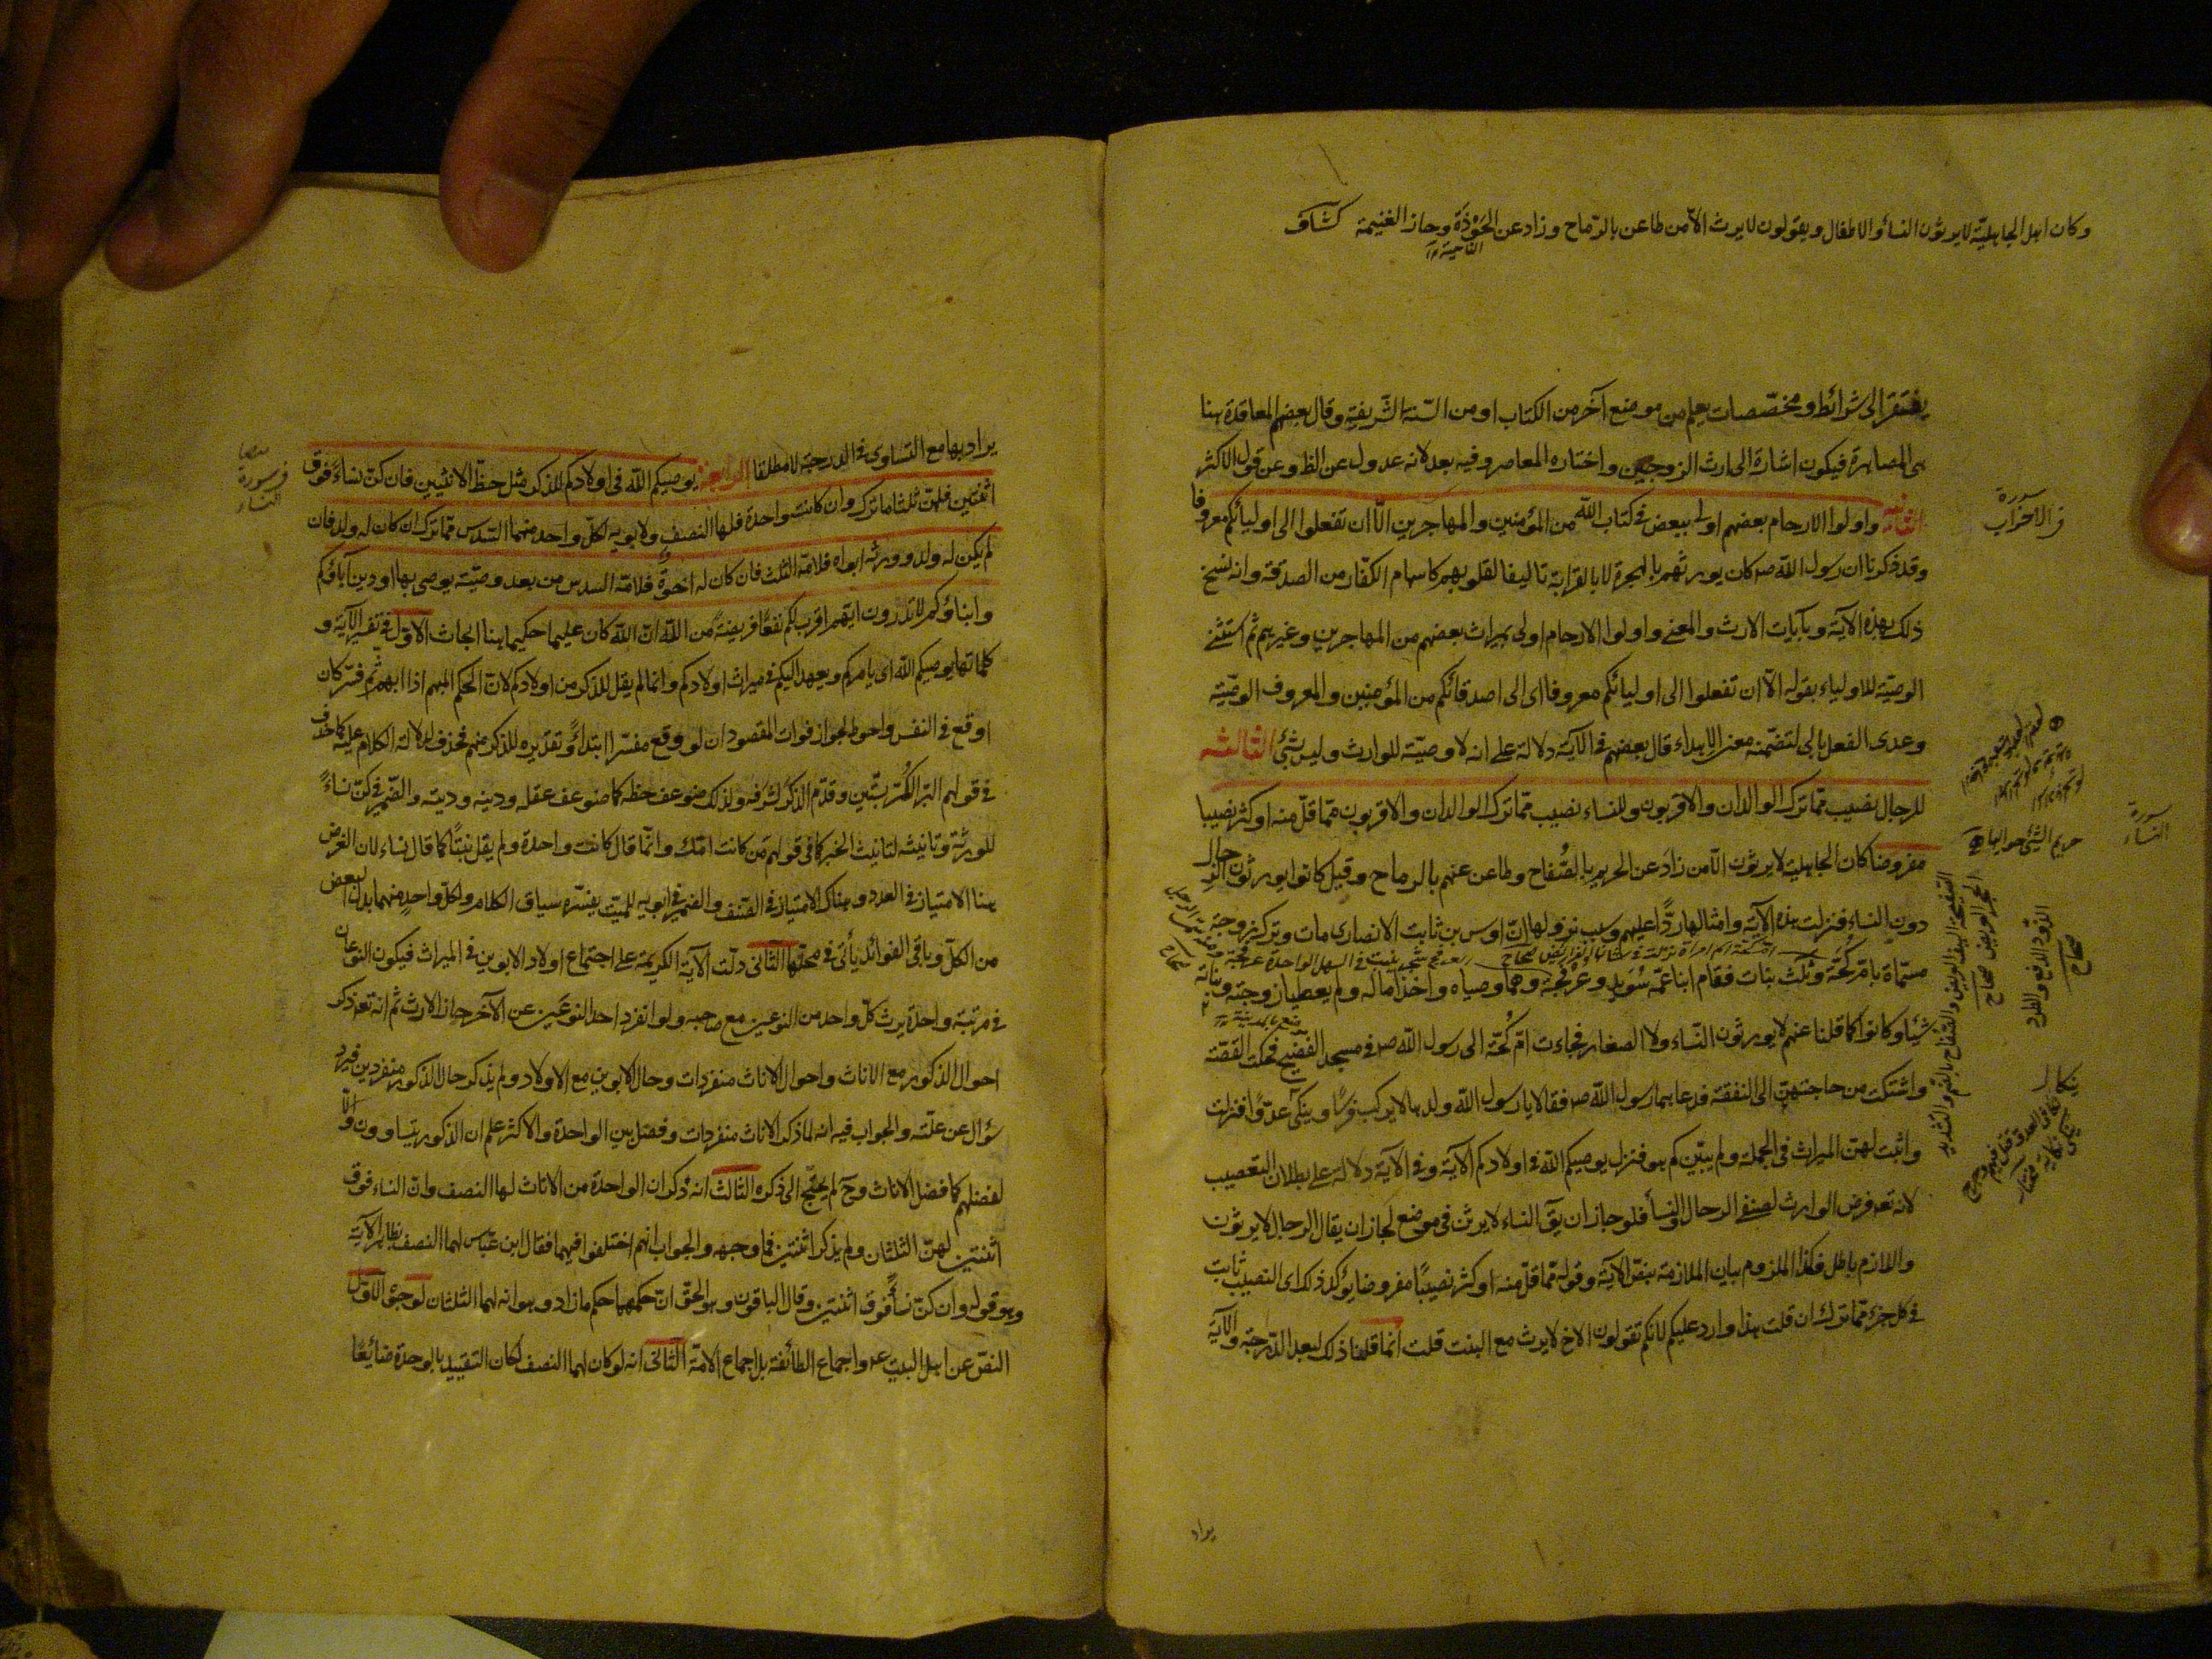 وكان اهل الجاهلية لا يورثون النساء والاطفال ويقولون لا يرث الا من طاعن بالرماح وزاد عن الحوزة وحاز الغنيمة كشاف
الناحية
يفتقر الى شرائط ومخصصات يعلم من موضع آخر من الكتاب او من السنة الشريفة وقال بعضهم المعاقدة هنا
هى المصاهرة فيكون اشارة الى ارث الزوجين واختاره المعاصر وفيه بعد لانه عدول عن الظ وعن قول الاكثر
الثانية واولوا الارحام بعضهم اولى ببعض فى كتاب الله من المؤمنين والمهاجرين الا ان تفعلوا الى اوليائكم معروفا
وقد ذكرنا ان رسول الله ص كان يورثهم بالهجرة لا بالقرابة تاليفا لقلوبهم كاسهام الكفار من الصدقة وانه نسخ
ذلك بهذه الآية وبآيات الارث والمعنى واولوا الارحام اولى بميراث بعضهم من المهاجرين وغيرهم ثم استثنى
الوصية للاولياء بقوله الا ان تفعلوا الى اوليائكم معروفا اى الى اصدقائكم من المؤمنين والمعروف الوصية
وعدى الفعل بالى لتضمنه معنى الاسداء قال بعضهم فى الآية دلالة على انه لا وصية للوارث وليس بشئ الثالثة
للرجال نصيب مما ترك الوالدان والاقربون وللنساء نصيب مما ترك الوالدان والاقربون مما قل منه او كثر نصيبا
مفروضا كان الجاهلية لا يورثون الا من زاد عن الحريم بالصفاح وطاعن عنهم بالرماح وقيل كانوا يورثون الرجال
دون النساء فنزلت هذه الآية وامثالها ردا عليهم وسبب نزولها ان اوس بن ثابت الانصارى مات وترك زوجة
مسماة بام كحة وثلث بنات فقام ابنا عمه سويد وعرفجة وهما وصياه واخذا ماله ولم يعطيا زوجته وبناته
شيئا وكانوا كما قلنا عنهم لا يورثون النساء ولا الصغار فجاءت ام كحة الى رسول الله ص فى مسجد الفضيخ فحكت القصة
واشتكت من حاجتهن الى النفقة فدعاهما رسول الله ص فقالا يا رسول الله ولدها لا يركب فرسا وينكى عدوا فنزلت
واثبت لهن الميراث فى الجملة ولم يبين كم هو فنزل يوصيكم الله فى اولادكم الآية وفى الآية دلالة على بطلان التعصيب
لانه تع فرض الوارث لصنفى الرجال والنساء فلو جاز ان يق النساء لا يرثن فى موضع لجاز ان يقال الرجال لا يرثون
واللازم باطل فكذا الملزوم بيان الملازمة بنص الآية وقوله مما قل منه او كثر نصيبا مفروضا يؤكد ذلك اى النصيب ثابت
فى كل جزء مما ترك ان قلت هذا وارد عليكم لانكم تقولون الاخ لا يرث مع البنت قلت انما قلنا ذلك لبعد الدرجة والآية
يراد
سورة
فى الاحزاب
سورة
النساء
حريم الشئ حواليها
الذود الدفع والطرد
صحاح
يراد بها مع التساوى فى الدرجة لا مطلقا الرابعة يوصيكم الله فى اولادكم للذكر مثل حظ الانثيين فان كن نساء فوق
اثنتين فلهن ثلثا ما ترك وان كانت واحدة فلها النصف ولابويه لكل واحد منهما السدس مما ترك ان كان له ولد فان
لم يكن له ولد وورثه ابواه فلامه الثلث فان كان له اخوة فلامه السدس من بعد وصية يوصى بها او دين آباؤكم
وابناؤكم لا تدرون ايهم اقرب لكم نفعا فريضة من الله ان الله كان عليما حكيما هنا ابحاث الاول فى تفسير الآية و
كلماتها يوصيكم الله اى يامركم ويعهد اليكم فى ميراث اولادكم وانما لم يقل للذكر من اولادكم لان الحكم المبهم اذا ابهم ثم فسر كان
اوقع فى النفس واحوط لجواز فوات المقصود ان لو وقع مفسرا ابتداء وتقديره للذكر منهم فحذف لدلالة الكلام عليه كما حذف
فى قولهم البر الكر بستين وقدم الذكر لشرفه ولذلك ضوعف حظه كما ضوعف عقله ودينه وديته والضمير فى كن نساء
للورثة وتانيثه لتانيث الخبر كما فى قولهم من كانت امك وانما قال كانت واحدة ولم يقل بنتا كما قال نساء لان الغرض
هنا الامتياز فى العدد وهناك الامتياز فى الصنف والضمير فى ابويه للميت يفسره سياق الكلام ولكل واحد منهما بدل البعض
من الكل وباقى الفوائد يأتى فى محلها الثانى دلت الآية الكريمة على اجتماع اولاد الابوين فى الميراث فيكون النوعان
فى مرتبة واحدة يرث كل واحد من النوعين مع صاحبه ولو انفرد احد النوعين عن الآخر حاز الارث ثم انه تع ذكر
احوال الذكور مع الاناث واحوال الاناث منفردات وحال الابوين مع الاولاد ولم يذكر حال الذكور منفردين فيرد
سؤال عن علته والجواب فيه انه لما ذكر الاناث منفردات وفصل بين الواحدة والاكثر علم ان الذكور يتساوون والا
لفضلهم كما فضل الاناث وح لم يحتج الى ذكره الثالث انه ذكر ان الواحدة من الاناث لها النصف وان النساء فوق
اثنتين لهن الثلثان ولم يذكر اثنتين فما وجهه والجواب انهم اختلفوا فيهما فقال ابن عباس لهما النصف بظاهر الآية
وهو قوله وان كن نساء فوق اثنتين وقال الباقون وهو الحق ان حكمهما حكم ما زاد وهو انه لهما الثلثان لوجوه الاول
النص عن اهل البيت ع واجماع الطائفة بل اجماع الامة الثانى انه لو كان لهما النصف لكان التقييد بالوحدة ضائعا
فى سورة
النساء